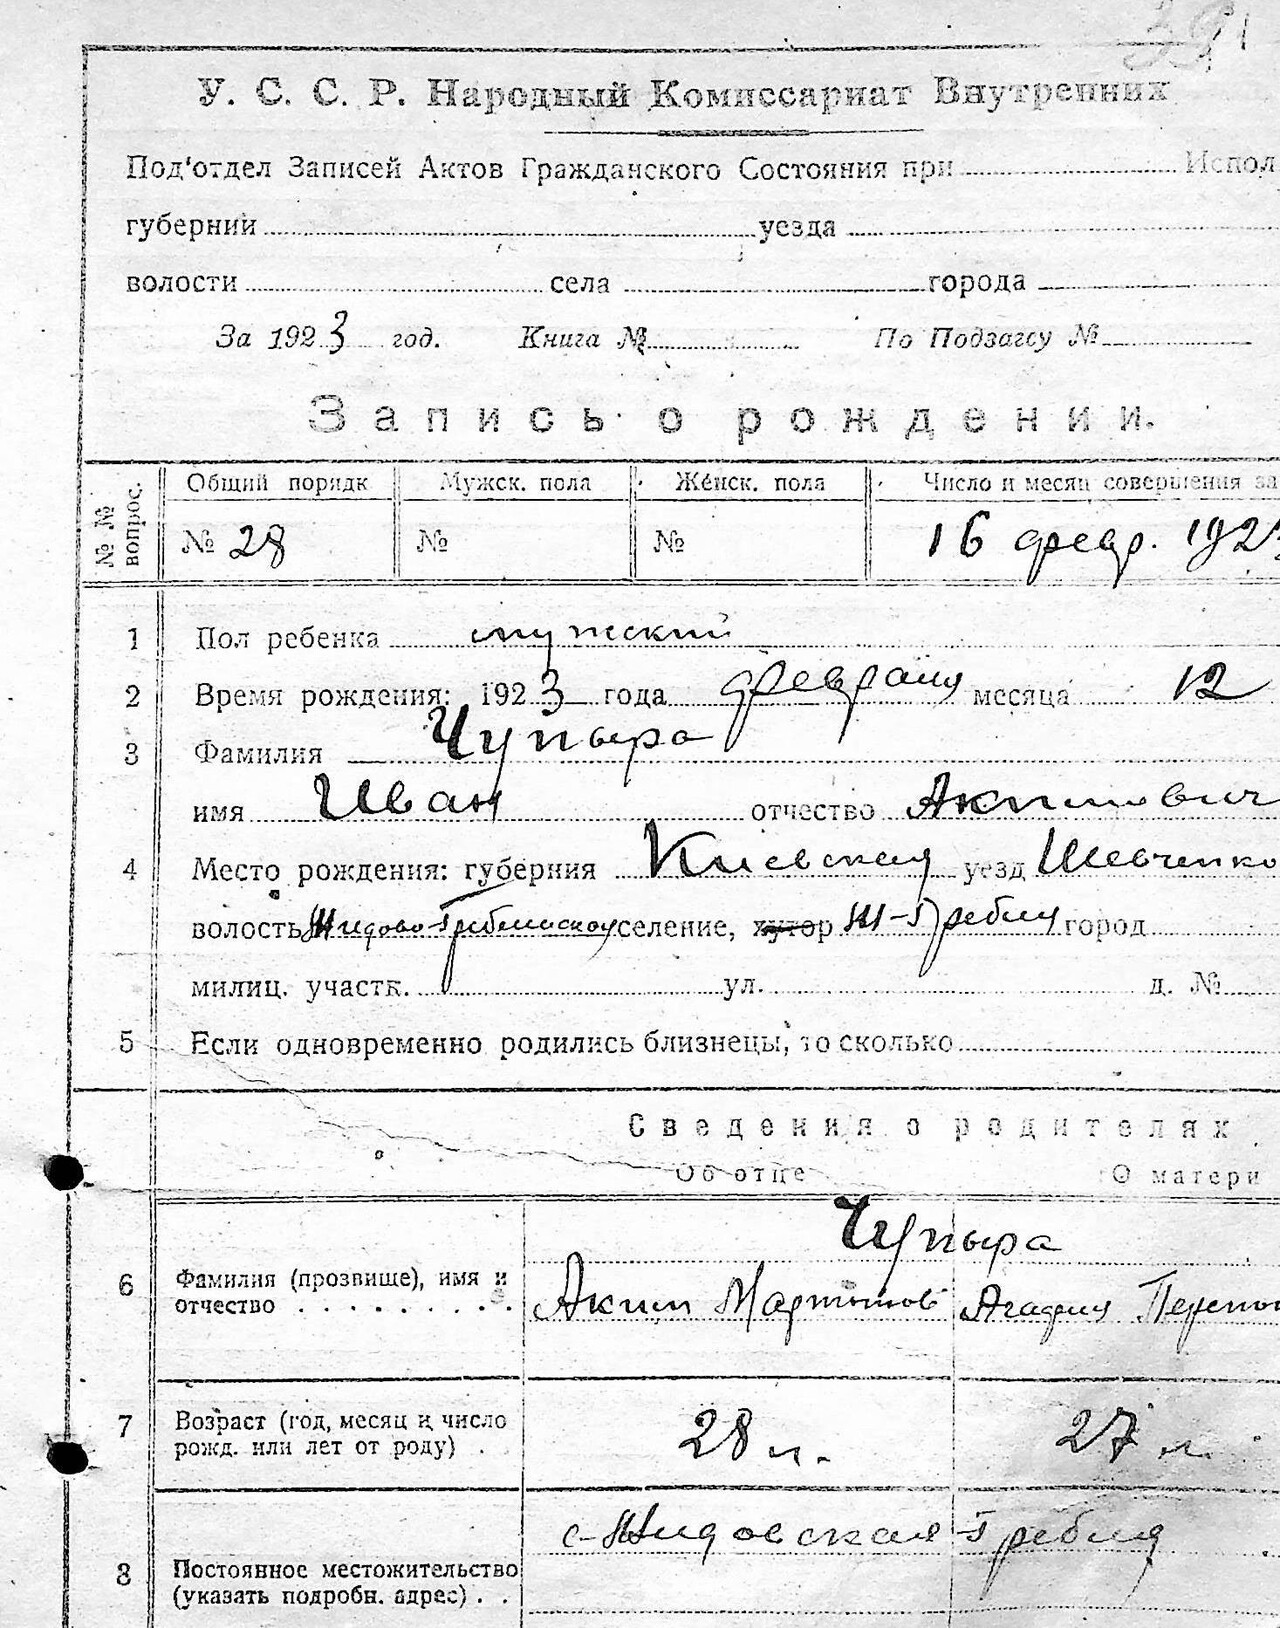 391
У. С. С. Р. Народный Комиссариат Внутренних
Под'отдел Записей Актов Гражданского Состояния при Испол
губернии уезда
волости села города
За 1923 год. Книга № По Подзагсу №
Запись о рождении.
№ № вопрос. Общий порядк Мужск. пола Женск. пола Число и месяц совершения за
№ 28 № № 16 февр. 192
1 Пол ребенка мужский
2 Время рождения: 1923 года февраля месяца 12
3 Фамилия Чупыра
имя Иван отчество Акимович
4 Место рождения: губерния Киевская уезд Шевченко
волость Жидово-Гребельской селение, хутор Ж-Гребля город
милиц. участк. ул. д. №
5 Если одновременно родились близнецы, то сколько
Сведения о родителях
Об отце О матери
Чупыра
6 Фамилия (прозвище), имя и отчество Аким Мартынов Агафия
7 Возраст (год, месяц и число рожд. или лет от роду) 28 л. 27 л.
с-Жидовская-Гребля
8 Постоянное местожительство (указать подробн. адрес)